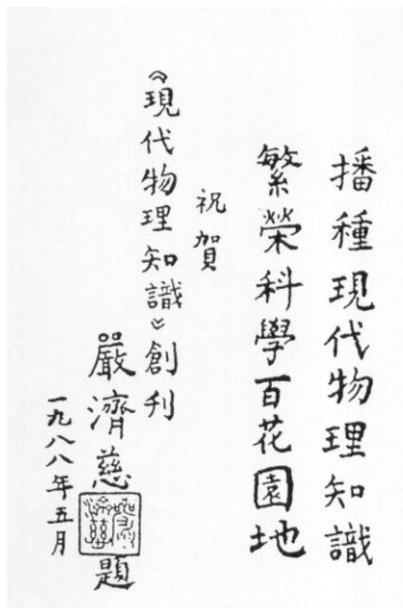 播種現代物理知識
繁榮科學百花園地
祝賀
《現代物理知識》創刊
嚴濟慈題
一九八八年五月